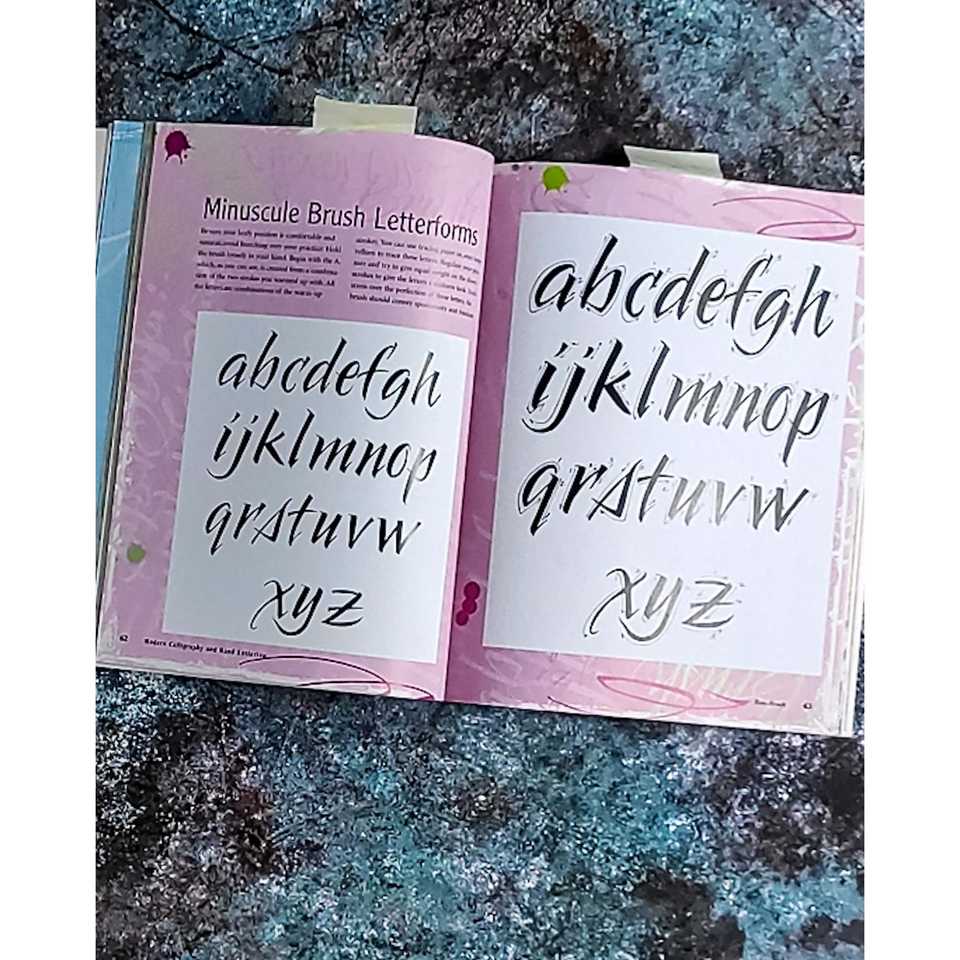 Minuscule Brush Letterforms
Be sure your body position is comfortable and
natural; avoid hunching over your practice. Hold
the brush loosely in your hand. Begin with the A,
which, as you can see, is created from a combina-
tion of the two strokes you warmed up with. All
the letters are combinations of the warm-up
strokes. You can use tracing paper or
vellum to trace these letters.
and try to give equal weight on the down
strokes to give the letters a uniform look.
stress over the perfection of these letters; the
brush should convey spontaneity and
abcdefgh
ijklmnop
qrstuvw
xyz
62 Modern Calligraphy and Hand Lettering
abcdefgh
ijklmnop
qrstuvw
xyz
63